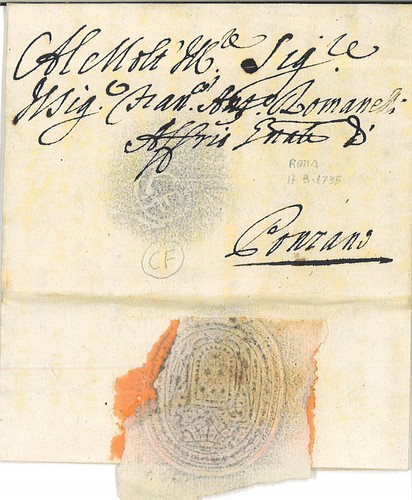 Al Molto Ill.re Sig.re
Il Sig.r Fran.co Ant.o Romanelli
Affris
Roma
17.9.1735
CF
Ponzano